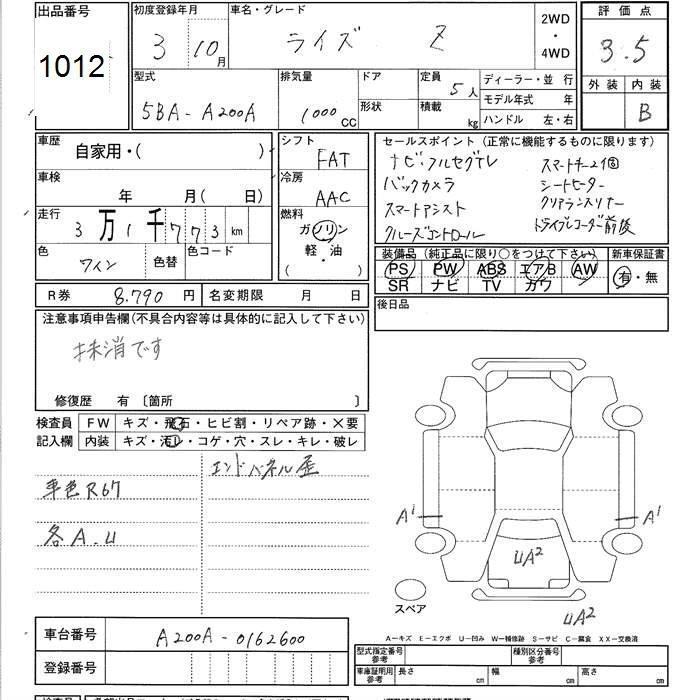 出品番号 1012
初度登録年月 3 10月
車名・グレード ライズ Z
2WD・4WD
評価点 3.5
外装 内装 B
型式 5BA-A200A
排気量 1000cc
ドア
形状
定員 5人
積載 kg
ディーラー・並行
モデル年式 年
ハンドル 左・右
車歴 自家用・( )
車検 年 月( 日)
走行 3万1千773km
色 ワイン 色替 色コード
シフト FAT
冷房 AAC
燃料 ガソリン 軽・油 ( ・ )
セールスポイント(正常に機能するものに限ります)
ナビ・フルセグTV スマートキー2個
バックカメラ シートヒーター
スマートアシスト クリアランスソナー
クルーズコントロール ドライブレコーダー前後
装備品(純正品に限り○をつけて下さい) 新車保証書
PS PW ABS エアB AW 有・無
SR ナビ TV カワ
R券 8.790円 名変期限 月 日
後日品
注意事項申告欄(不具合内容等は具体的に記入して下さい)
抹消です
修復歴 有 〔箇所 〕
検査員 FW キズ・飛石・ヒビ割・リペア跡・×要
記入欄 内装 キズ・汚レ・コゲ・穴・スレ・キレ・破レ
エンドパネル歪
車色R67
各A.U
A1 A1
UA2
スペア
UA2
A-キズ E-エクボ U-凹み W-補修跡 S-サビ C-腐食 XX-交換済
車台番号 A200A-0162600
登録番号
型式指定番号 参考 種別区分番号 参考
車庫証明用 参考 長さ cm 幅 cm 高さ cm